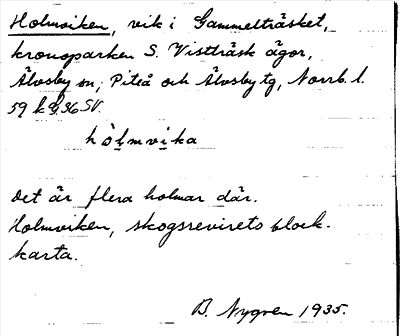 Holmviken, vik i Gammelträsket,
kronoparken S. Vistträsk ägor,
Älvsby sn, Piteå och Älvsby tg, Norrb. l.
59 k 36 SV.
hòlmvika
Det är flera holmar där.
Holmviken, skogsrevirets block-
karta.
B. Nygren 1935.